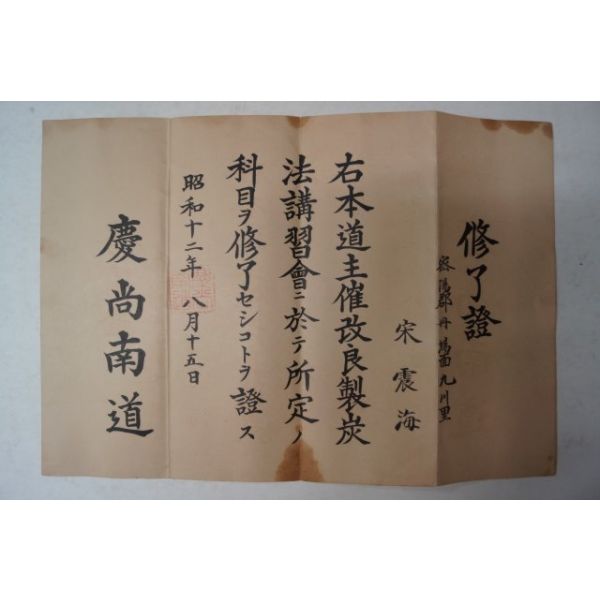 修了證
密陽郡丹場面九川里
宋震海
右本道主催改良製炭
法講習會ニ於テ所定ノ
科目ヲ修了セシコトヲ證ス
昭和十二年八月十五日
慶尚南道